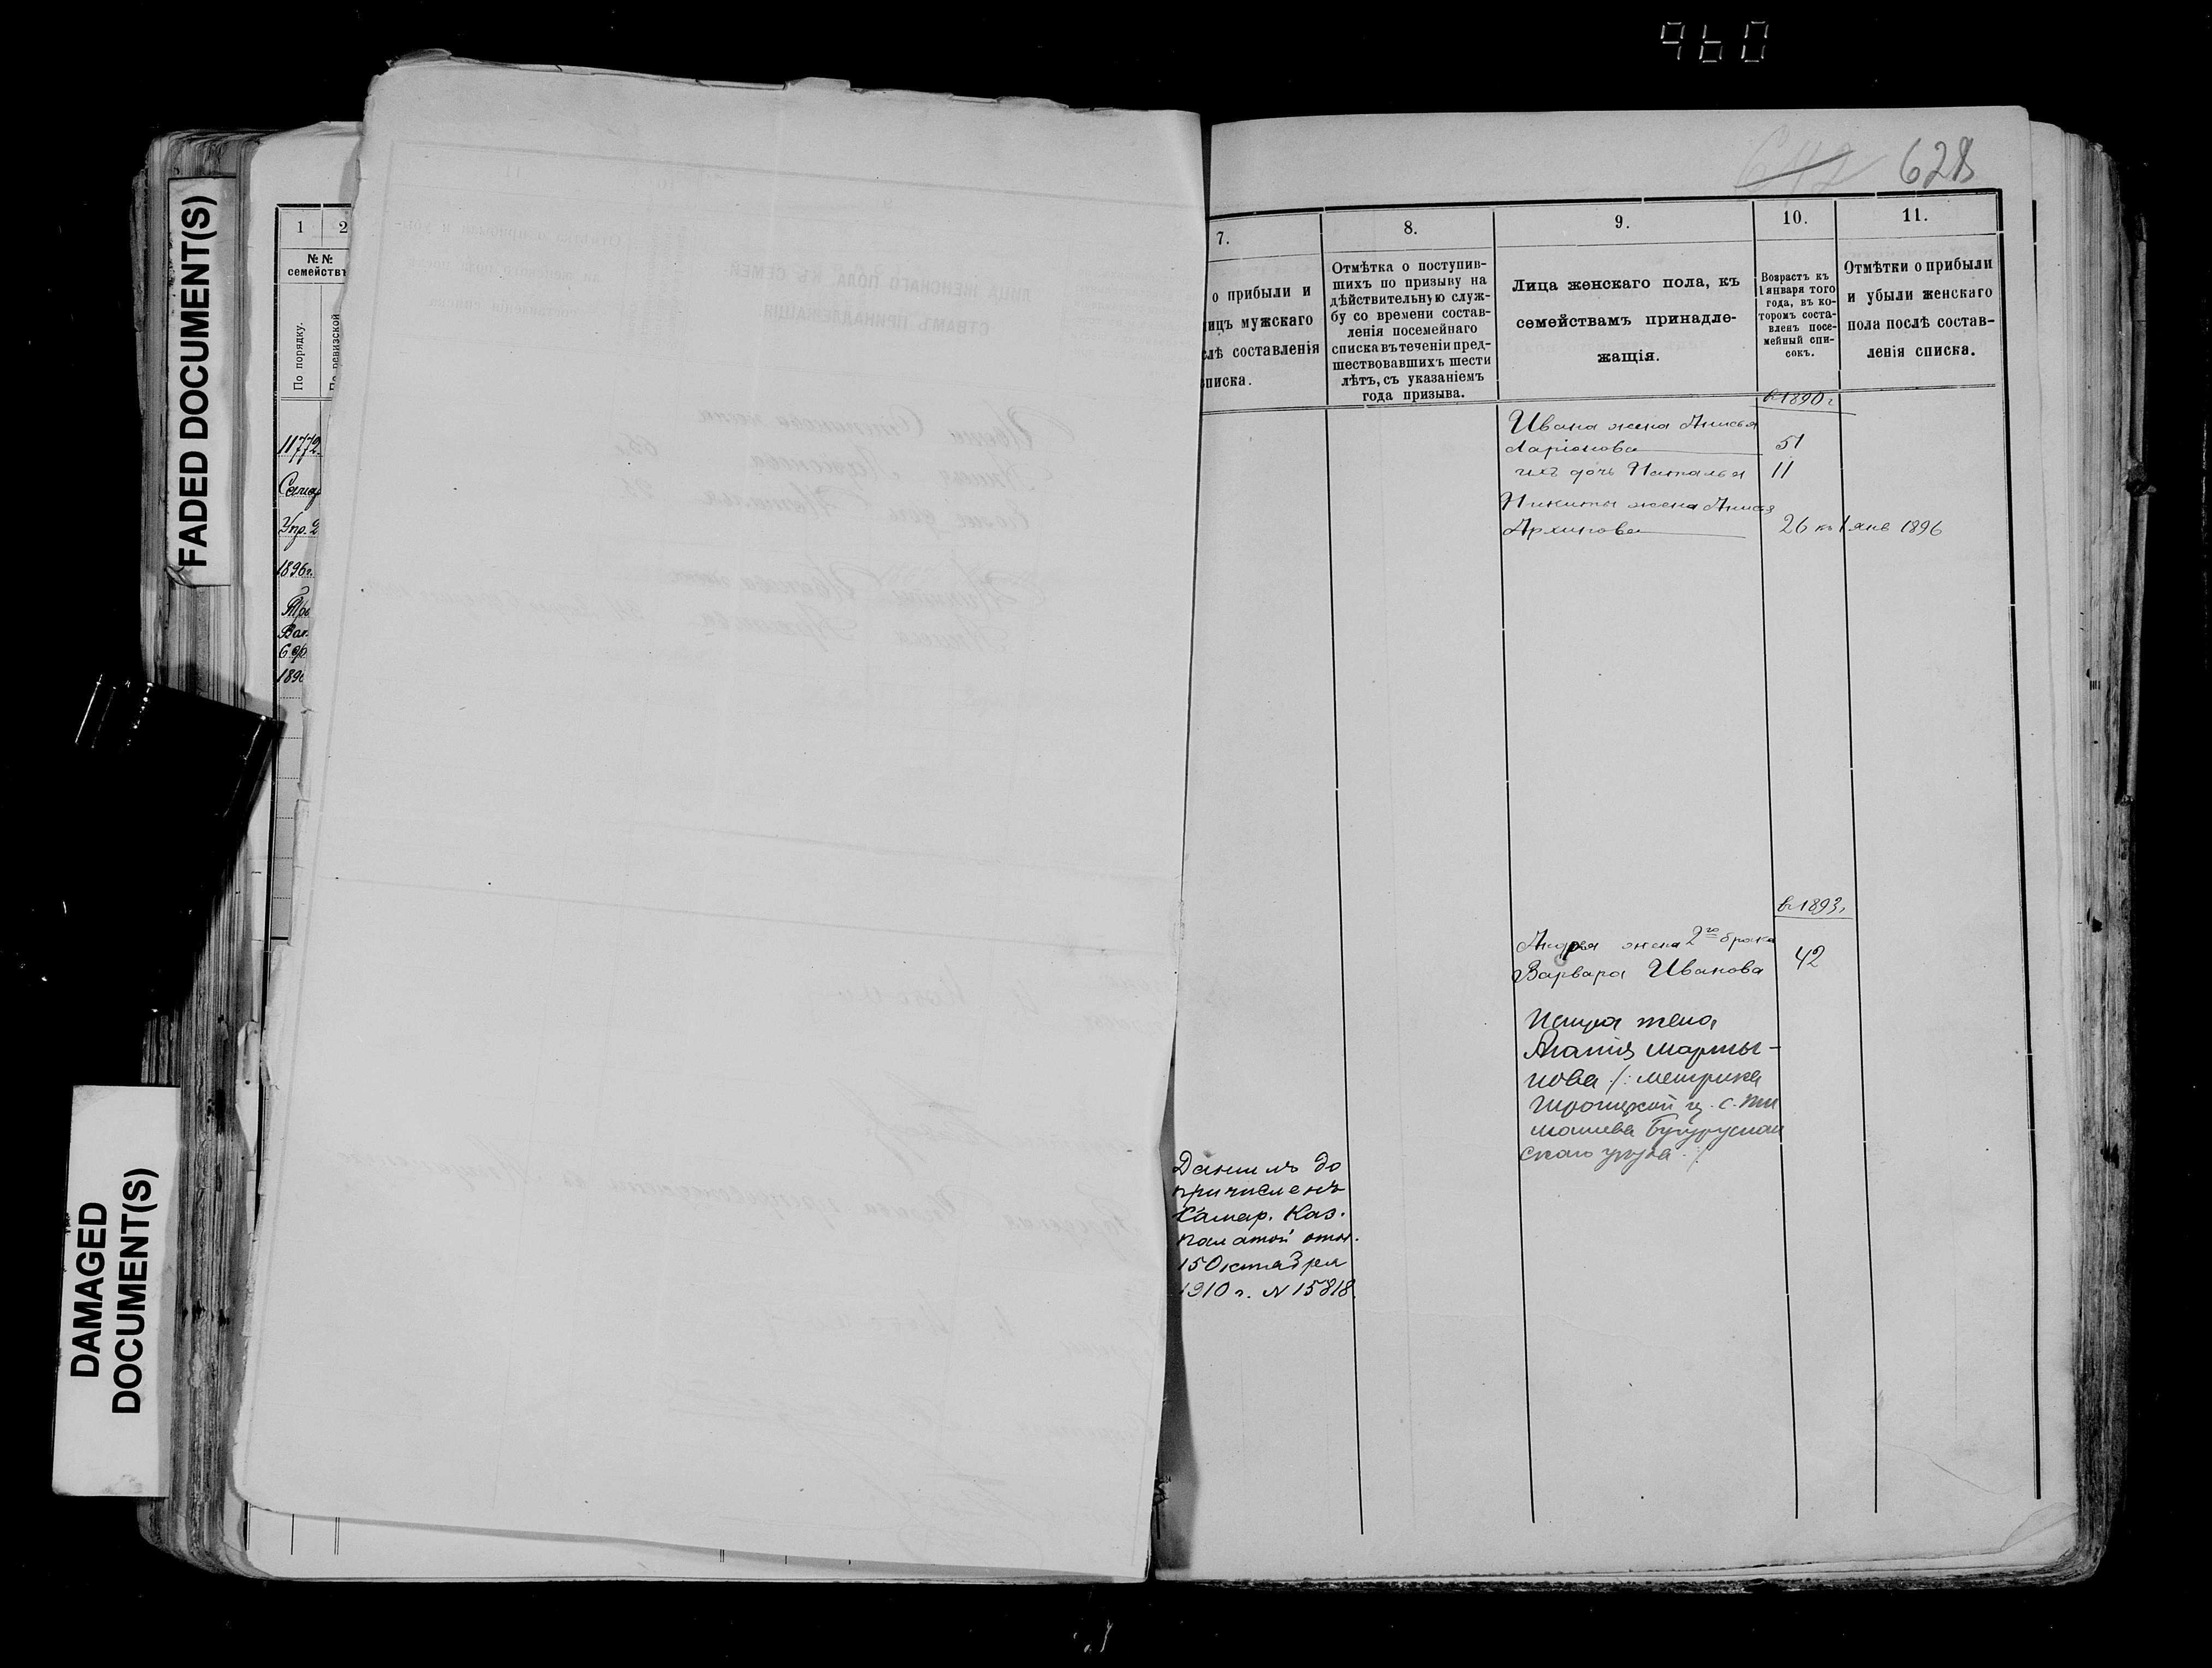 960
FADED DOCUMENT(S)
DAMAGED
DOCUMENT(S)
1
2
№№
семействъ
По порядку.
По ревизской
11772.
Самар
Упр. 2
1896г.
Тро
6 ф
189
642
628
7.
8.
9.
10.
11.
о прибыли и
лицъ мужскаго
слѣ составленія
списка.
Отмѣтка о поступив-
шихъ по призыву на
дѣйствительную служ-
бу со времени состав-
ленія посемейнаго
списка въ теченіи пред-
шествовавшихъ шести
лѣтъ, съ указаніемъ
года призыва.
Лица женскаго пола, къ
семействамъ принадле-
жащія.
Возрастъ къ
1 января того
года, въ ко-
торомъ соста-
вленъ посе-
мейный спи-
сокъ.
Отмѣтки о прибыли
и убыли женскаго
пола послѣ состав-
ленія списка.
в 1890 г
Ивана жена Анисья
Ларіонова 51
ихъ дочь Наталья 11
Никиты жена Анисья
Архипова 26 къ 1 янв 1896
в 1893г
Андрея жена 2го брака
Варвара Иванова 42
жена
Агапія Марты-
нова /: метрика
Троицкой ц. с. Ти
машева Бугуруслан
скаго уѣзда :/
Даніилъ до
причисленъ
Самар. Каз.
палатой отъ
15 Октября
1910 г. N 15818.